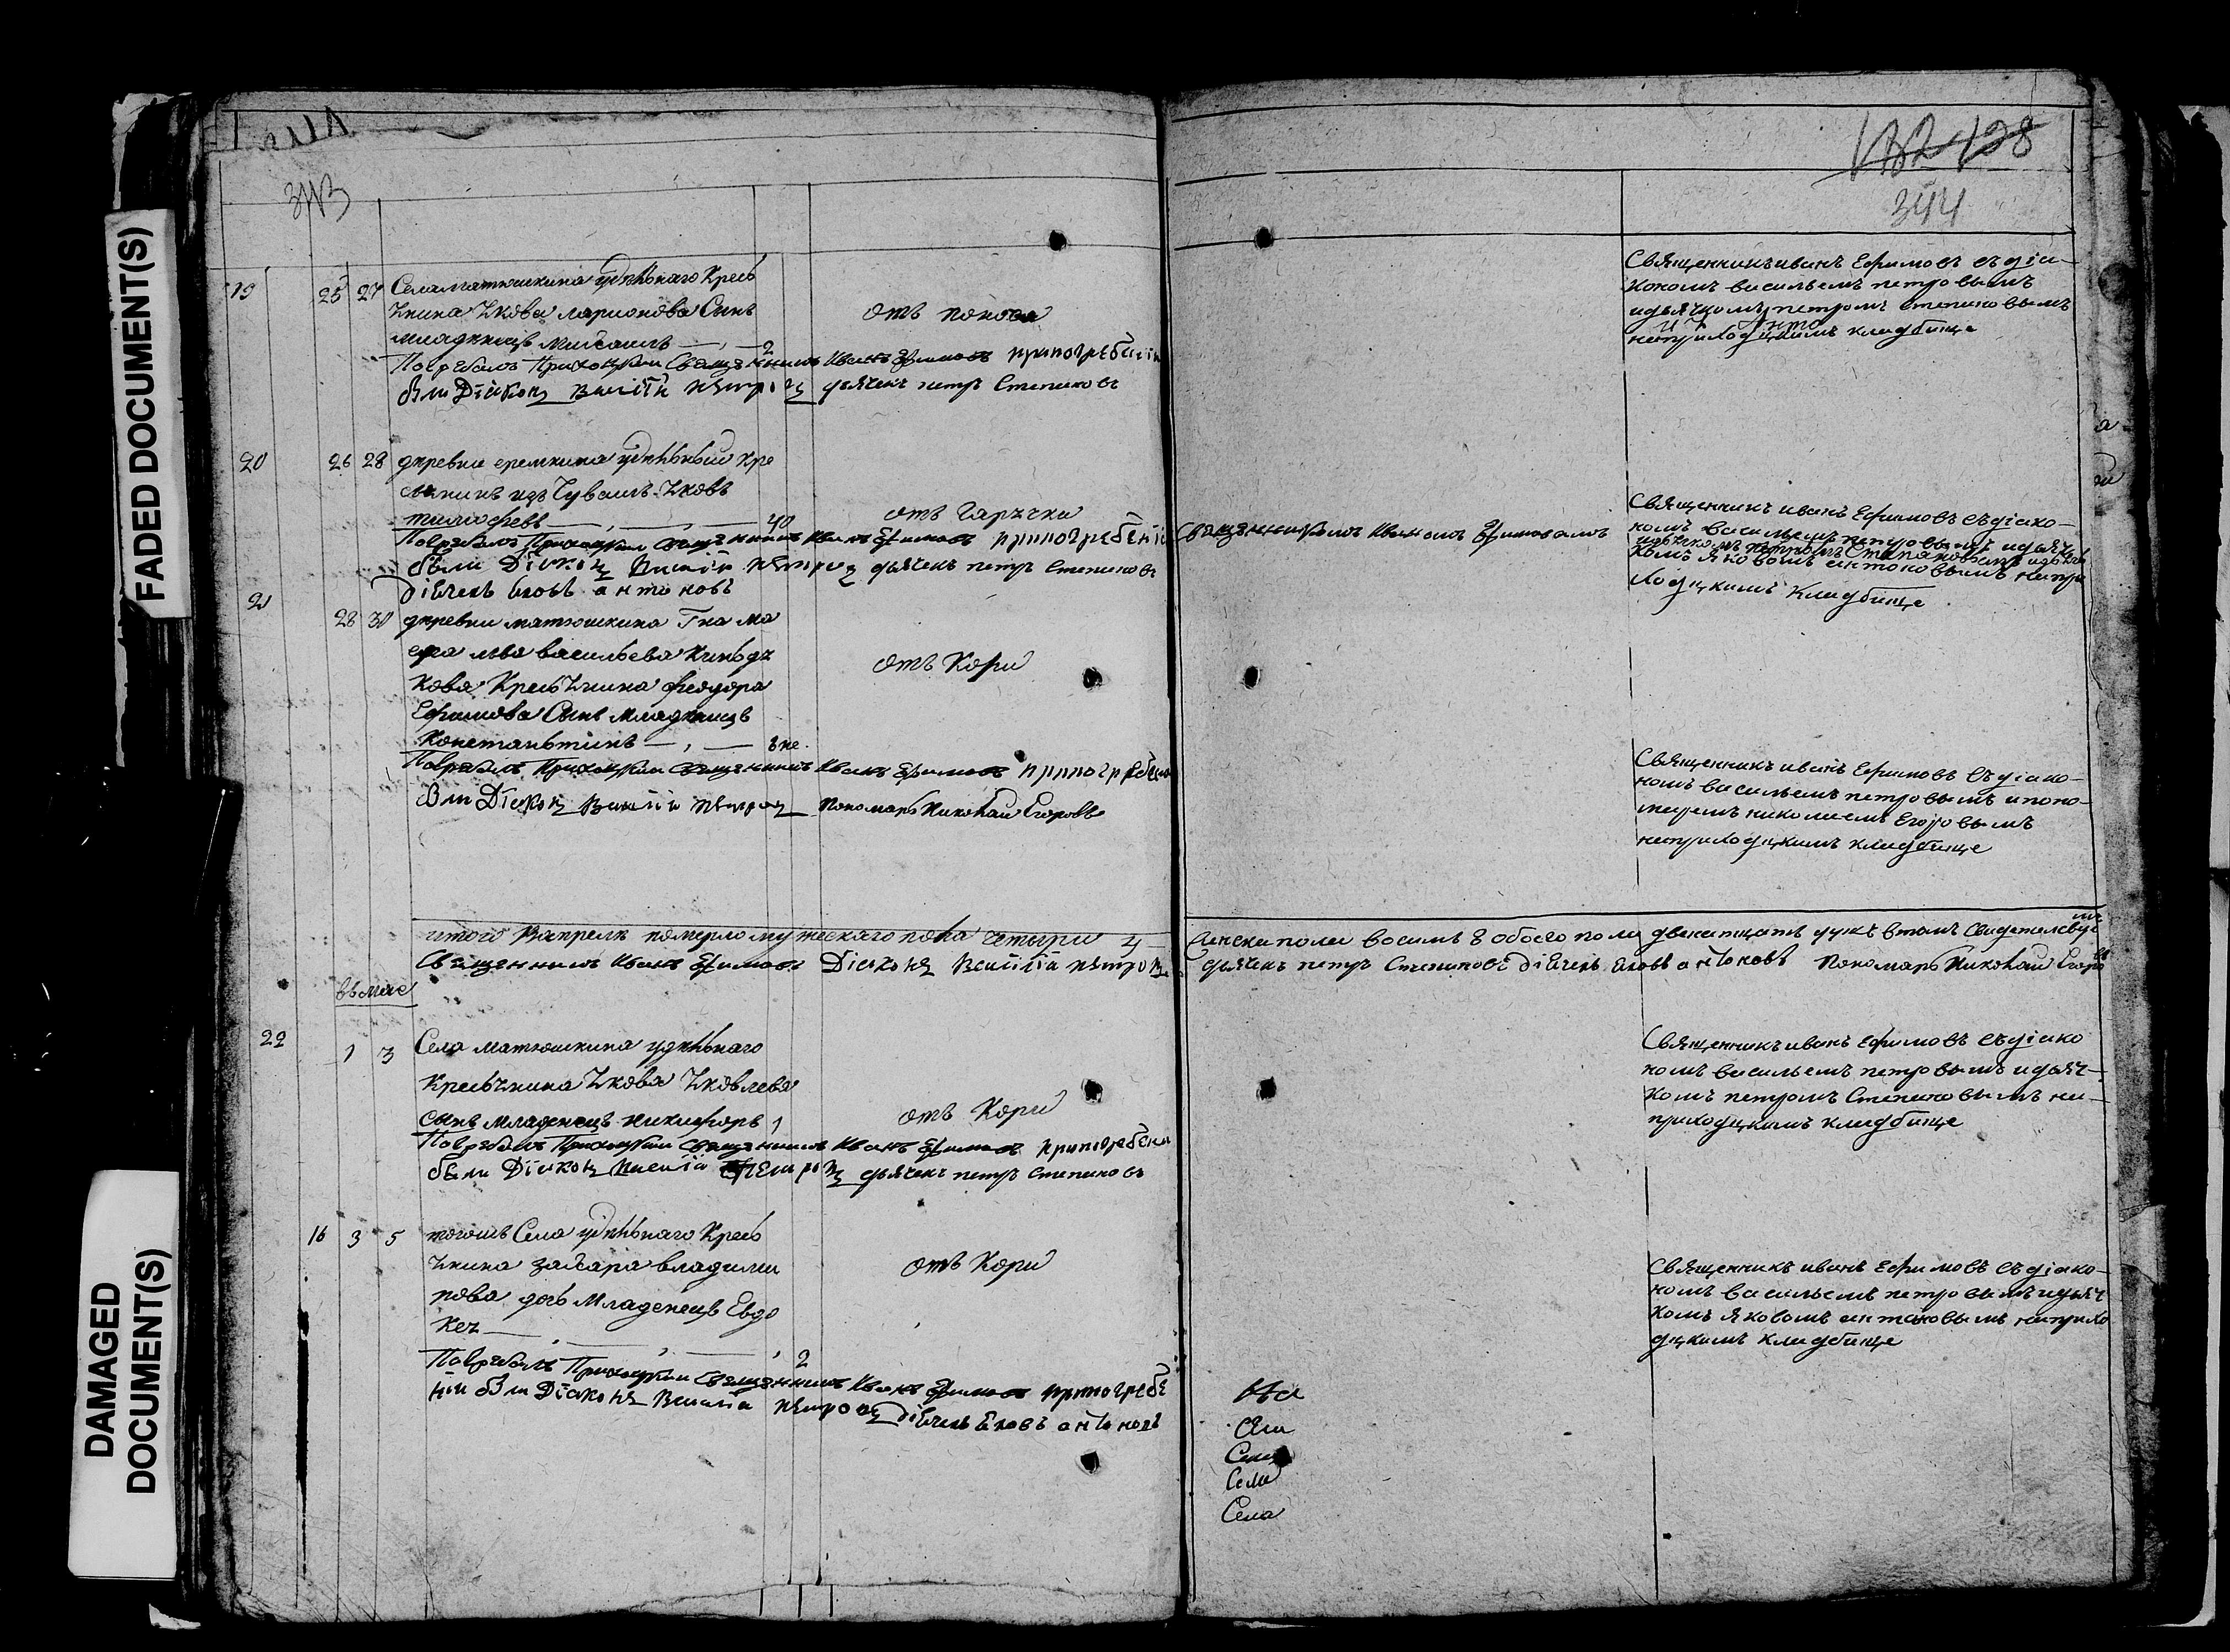 FADED DOCUMENT(S)
DAMAGED DOCUMENT(S)
343
19 25 27 Села матюшкина удѣльнаго Кресь
янина Якова ларионова Сынъ
младенецъ Михаилъ — 2
отъ поноса
Погребалъ Приходкии Священникъ Иванъ Ефимовъ припогребении
были Діаконъ Василій Петровъ дьячекъ петръ Степановъ
20 26 28 деревни еремкина удѣльный кре
стьянинъ изъ Чувашъ Яковъ
тимофеевъ — 40
отъ Гарячки
Погребалъ Приходкии Священникъ Иванъ Ефимовъ припогребении
были Діаконъ Василій Петровъ дьячекъ петръ Степановъ
діячекъ Яковъ антоновъ
21 28 30 деревни матюшкина Гна Ма
ера льва васильева
кова Кресьянина феодора
Ефимова Сынъ младенецъ
Констаньтинъ —
отъ Кори
Погребалъ Приходкии Священникъ Иванъ Ефимовъ припогребении
были Діаконъ Василій Петровъ Пономарь Николай Егоровъ
итого Вапреле померло мужескаго пола четыри 4
Священникъ Иванъ Ефимовъ Діаконъ Василій Петровъ
въ мае
22 1 3 Села матюшкина удѣльнаго
Кресьянина Якова Яковлева
сынъ младенецъ никифоръ 1
отъ Кори
Погребалъ Приходкии Священникъ Иванъ Ефимовъ припогребении
были Діаконъ Василій Петровъ дьячекъ петръ Степановъ
16 3 5 тогошъ Села удѣльнаго Кресь
янина захара владими
рова дочь младенецъ Евдо
кея — 2
отъ Кори
Погребалъ Приходкии Священникъ Иванъ Ефимовъ припогребе
ніи были Діаконъ Василій Петровъ діячекъ Яковъ антоновъ
132 138
344
Священникъ иванъ Ефимовъ съ діа-
кономъ васильемъ петровымъ
идьячкомъ петромъ Степановымъ
наприходцкимъ кладбище
Священникомъ Иваномъ Ефимовамъ
Священникъ иванъ Ефимовъ съ діако-
номъ васильемъ петровымъ идьяч
комъ Яковомъ антоновымъ напри
ходцкимъ кладбище
Священникъ иванъ Ефимовъ съ діако-
номъ васильемъ петровымъ ипоно-
маремъ николаемъ Егоровымъ
наприходцкимъ кладбище
женска пола восимь 8 обоего пола двенатцать душъ втомъ свидетелствуемъ
дьячекъ петръ Степановъ діячекъ Яковъ антоновъ Пономарь Николай Егоровъ
Священникъ иванъ Ефимовъ съ діако
номъ васильемъ петровымъ идьяч-
комъ петромъ Степановымъ на-
приходцкимъ кладбище
Священникъ иванъ Ефимовъ съ діако-
номъ васильемъ петровымъ идьяч
комъ Яковомъ антоновымъ наприхо
дцкимъ кладбище
Села
Села